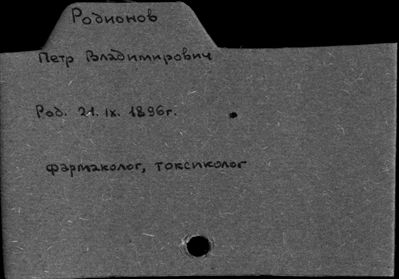 Родионов
Петр Владимирович
Род. 21. IX. 1896г.
фармаколог, токсиколог